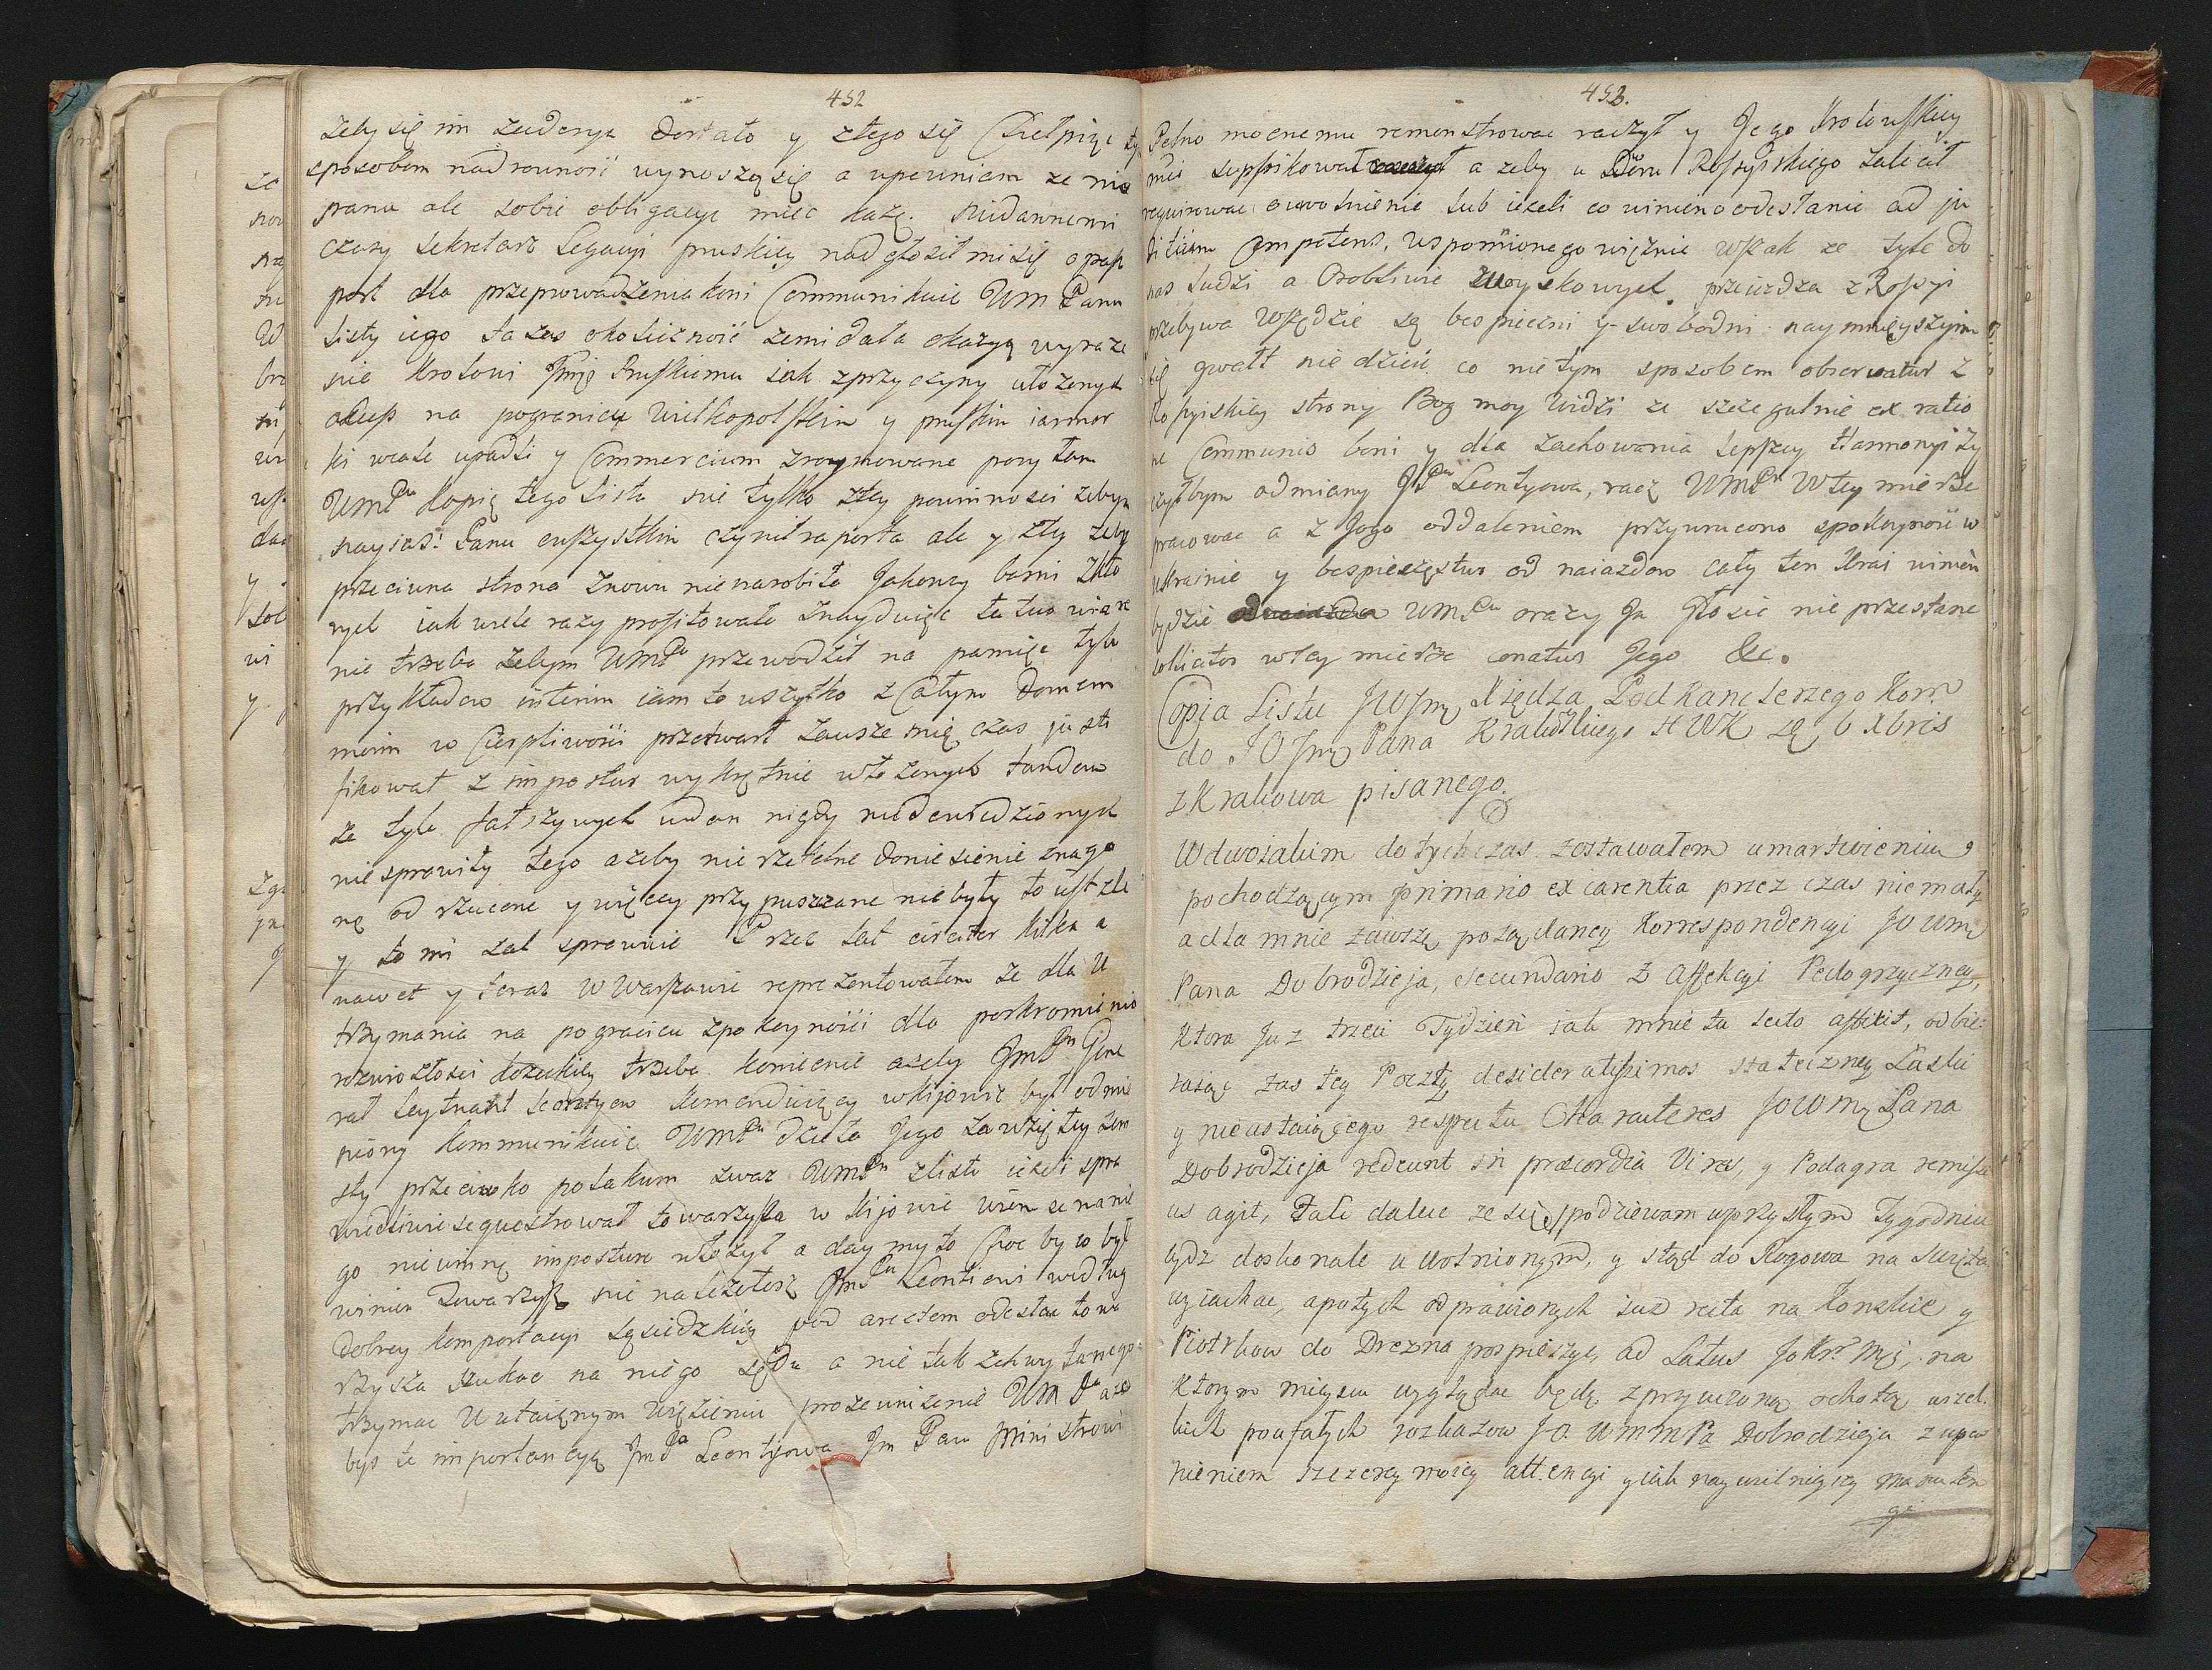 452
zeby się im zuderya dostało y ztego się Chełpiąc ty
sposobem nad rownosć wynoszą się a upewniam ze nie
panu ale sobie obligacye miec każę. Niedawnemi
czasy Sekretarz Legacyi pruskiey nadgłosił mi się o pasz
port dla przeprowadzenia koni Communikuię Um Panu
listy iego ta zas okolicznosć ze mi dała okazyą wyraze
nie krolowi Jmę Pruskiemu iak z przyczyny ułozonych
na pograniczu Wielkopolskim y pruskim iarmar
ki wcale upadli y Commercium zruynowane posyłam
UmPu kopią tego listu nie tylko z tey powinnosci zebym
nayias: Panu wszystkim czynił raporta ale y z tey zeby
przeciwna strona znowu nie narobiła Jakowey barni z kto
rych iak wiele razy profitowała znayduiąc łatwo wiarę
nie trzeba zebym UmPu przewodził na pamięc tyle
przykładow interim iam to wszytko z Całym Domem
moim w Cierpliwosci przetrwał zawsze mię czas justi
fikował z impostur wykrętnie włozonych tandem
ze tyle fałszywych udan nigdy niedowiedzionych
nie sprawiły tego azeby nie rzetelne doniesienie znago
ne od rzucone y więcey przypuszczane nie były to iest zle
y to mi zal sprawuie Przez lat circiter kilka a
nawet y teraz w Warszawie reprezentowałem ze dla U
trzymania na pograniczu spokoynosci dla poskromienia
rozwiozłosci kozackiey trzeba koniecznie azeby JmPn Gene
rał Leytnant Leontyew komenduiący w kijowie był odmie
niony kommunikuię UmPu dzieła Jego zawziętey zem
sty przeciwko polakom zwaz UmPn z listu iezeli spra
wiedliwie sequestrował towarzysza w Kijowie wiem ze na nie
go niewinną imposture włozył a daymy to Choc by to był
winien Towarzysz nie nalezałosz JmPu Leontiewi według
dobrey komportacyi sąsiedzkiey pod aresztem odesłac towa
rzysza szukac na niego sądu a nie tak schwytanego
trzymac W utaięnym więzieniu proszę unizenie Um Pa aze
bys te importancyą JmPa Leontijowa Jm Panu Ministrowi
453.
Pełno mocnemu remonstrowac raczył y Jego Krolewskiey
mci supplikował a zeby u Dworu Rossyiskiego zalicał
requirowac o uwolnienie lub iezeli co winien o odesłanie ad ju
ditium Competens, wspomnionego więznia wszak ze tyle do
nas ludzi a Osobliwie woyskowych przeiezdza z Rossyi
przebywa Wszędzie są bespieczni y swobodni naymnieyszym
się gwałt nie dzieie, co nie tym sposobem observatur z
Rossyiskiey strony Bog moy widzi ze szczegulnie ex ratio
ne Communis boni y dla zachowania lepszey Harmonyi zy
czyłbym odmiany JPa Leontyowa, racz UmPn w tey mierze
pracowac a z Jego oddaleniem przywrocono spokoynosć w
ukrainie y bespieczęstwo od naiazdow cały ten Krai winien
będzie UmPu oraz y Ja głosic nie przestanę
w tey mierze conatus Jego &c.
Copia Listu JWJmę Xiędza Podkanclerzego Korn
do JOJmę Pana Krakowskiego HWK z 6 Xbris
z Krakowa pisanego.
W dwojakim dotychczas zostawałem umartwieniu
pochodzącym primario ex carentia przez czas niemały
a dla mnie zawsze pożądaney Korrespondencyi JO Umę
Pana Dobrodzieja, secundario z Affekcyi Pedogryczney,
Ktora Juz trzeci Tydzien iak mnie tu lecto affixit, odbie:
raiąc zas tey Poczty desideratissimos stateczney Łaski
y nieustaiącego respectu Characteres JOWmę Pana
Dobrodzieja redeunt in præcordia Vires, y Podagra remissi
us agit, Tali dalece ze się spodziewam w przyszłym tygodniu
bydz doskonale u wolnionym, y ztąd do Rogowa na Swięta
wyiachac, a potych odprawionych iuz recta na Konskie y
Piotrkow do Drezna pospieszyc, ad Latus JoKr Mci, na
Ktorym mieyscu wyglądac będę z przywrzoną ochotą wszel:
kich poufałych rozkazow JO WMMPa Dobrodzieja z upew
nieniem szczerey moiey attencyi y iak naywilnieyszey manuten